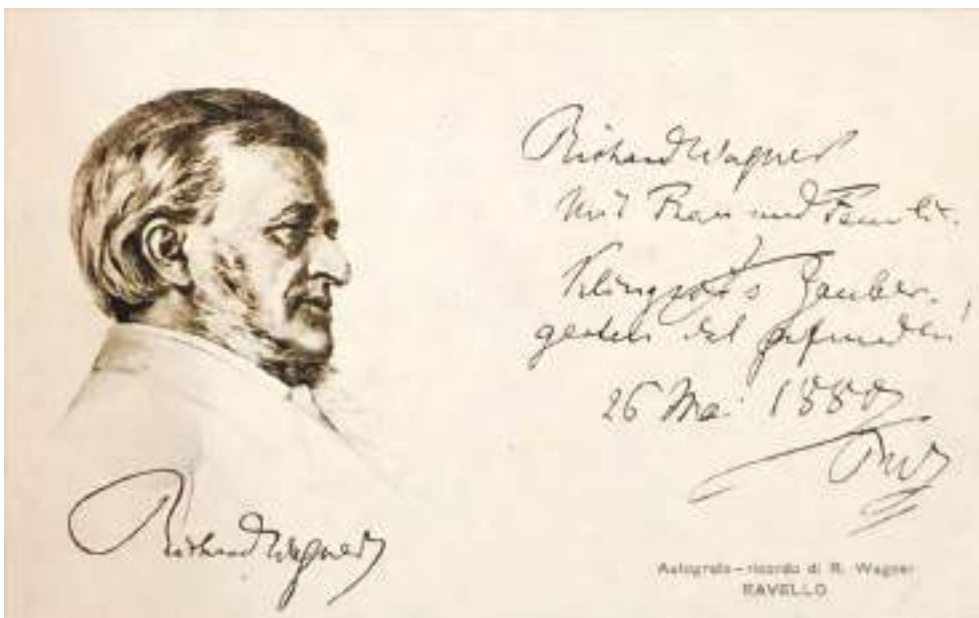 Richard Wagner
mit Frau und Familie.
Klingsor's Zauber-
garten ist gefunden!
26 Mai 1880
RW
Richard Wagner
Autografo-ricordo di R. Wagner
RAVELLO